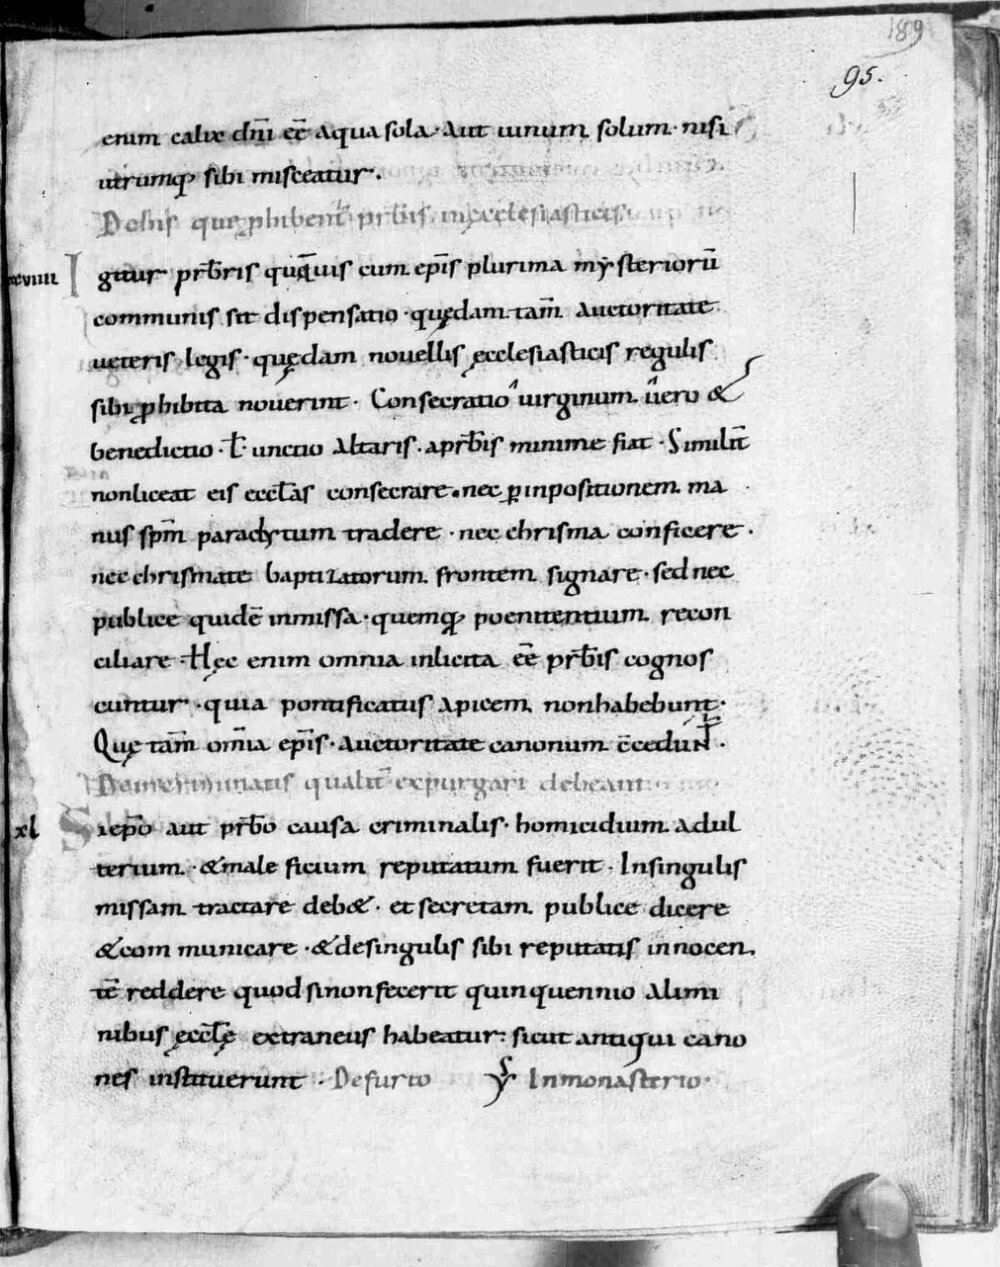 189
95.
enim calix dn̄i eē aqua sola · aut uinum solum · nisi
utrumq; sibi misceatur ·
De his quę ꝓhibent̄ prb̄is in ęcclesiasticis
xxxviiii Igitur prb̄ris quāuis cum ep̄is plurima mysteriorū
communis sit dispensatio · quędam tam̄ auctoritate
ueteris legis · quędam nouellis ęcclesiasticis regulis
sibi ꝓhibita nouerint · Consecratio uirginum uero &
benedictio · ł unctio altaris · a prb̄is minime fiat · Similit̄
non liceat eis eccłas consecrare · nec ꝑ inpositionem ma
nus spm̄ paraclytum tradere · nec chrisma conficere ·
nec chrismate baptizatorum frontem signare · sed nec
publice quidē in missa · quemq; poenitentium recon
ciliare · Hęc enim omnia inlicita eē prb̄is cognos
cuntur · quia pontificatus apicem non habebunt ·
Quę tam̄ om̄ia ep̄is · auctoritate canonum c̄cedunt̄ ·
De incriminatis qualit̄ expurgari debeant
xl Si ep̄o aut prb̄o causa criminalis · homicidium adul
terium · & male ficium reputatum fuerit · In singulis
missam tractare deb& · et secretam publice dicere
& com municare · & de singulis sibi reputatis innocen
tē reddere quod si non fecerit quinquennio a limi
nibus ęccłę extraneus habeatur : sicut antiqui cano
nes instituerunt · De furto In monasterio ·